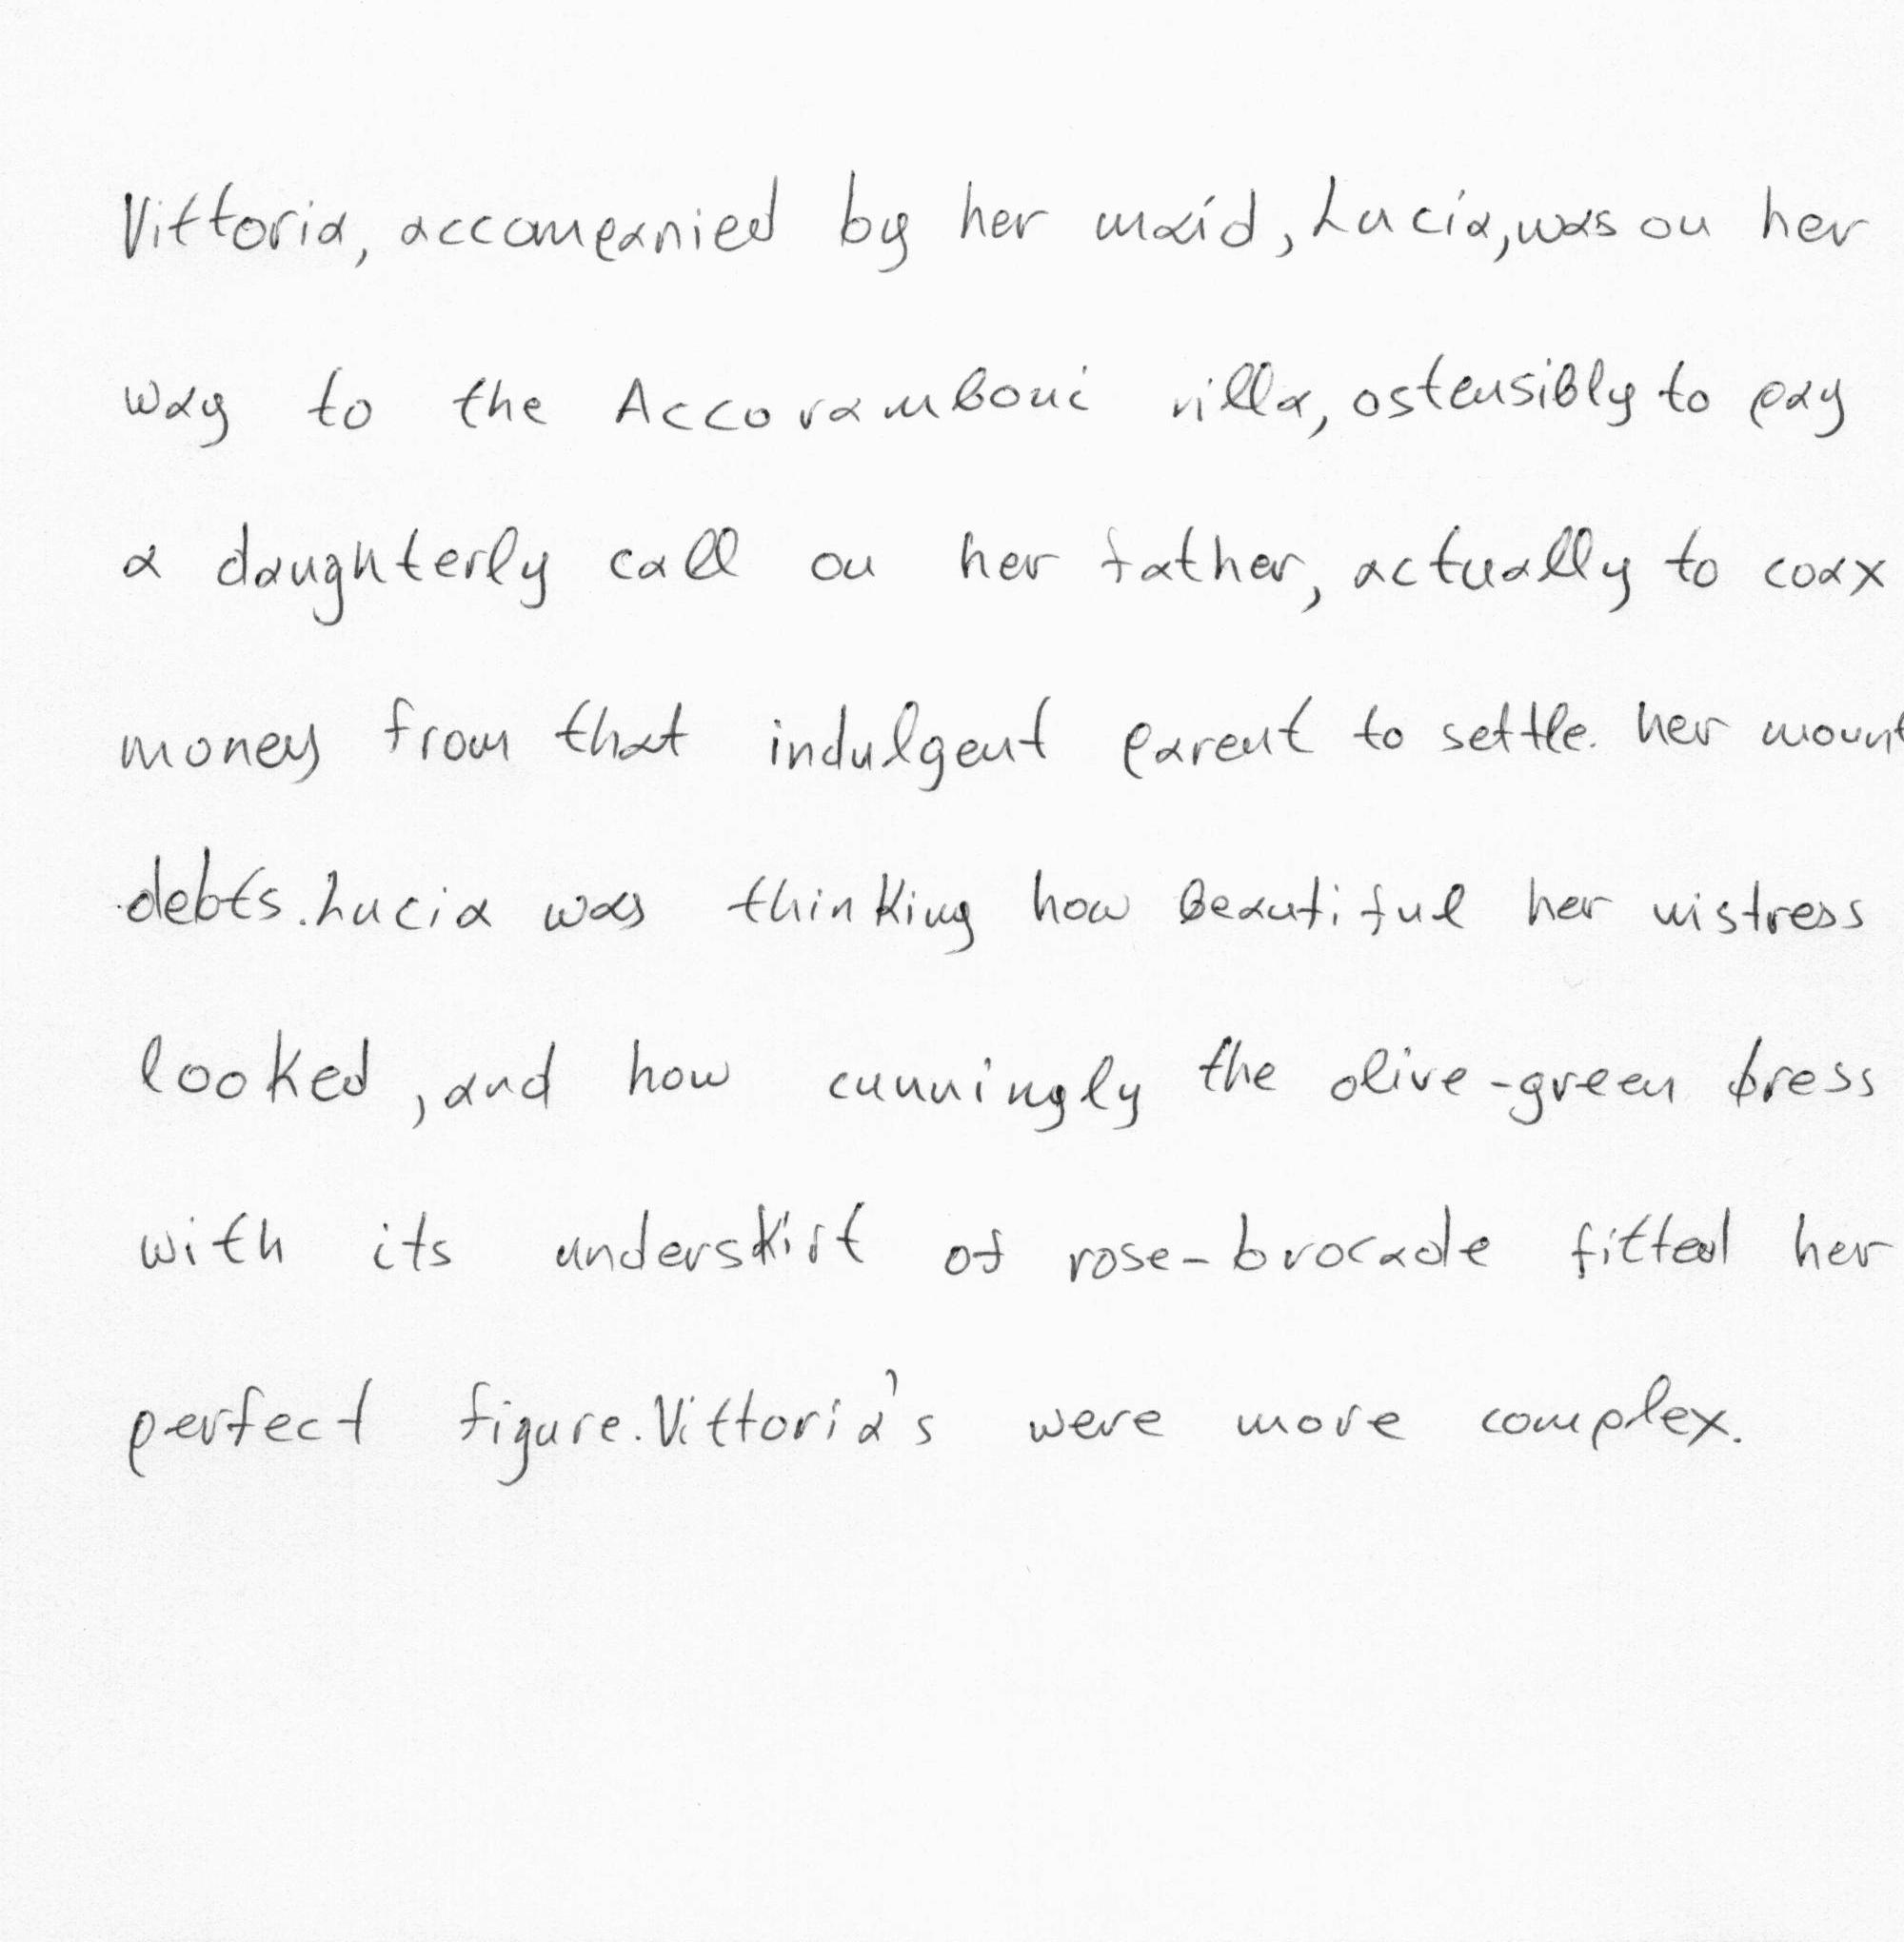 Vittoria, accompanied by her maid, Lucia, was on her
way to the Accoramboni villa, ostensibly to pay
a daughterly call on her father, actually to coax
money from that indulgent parent to settle her mount
debts. Lucia was thinking how beautiful her mistress
looked, and how cunningly the olive-green dress
with its underskirt of rose-brocade fitted her
perfect figure. Vittoria's were more complex.